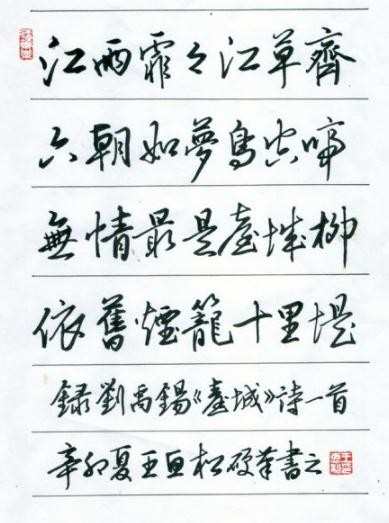 江雨霏々江草齊
六朝如夢鳥空啼
無情最是臺城柳
依舊煙籠十里堤
録劉禹錫《臺城》詩一首
辛卯夏王亜松硬筆書之